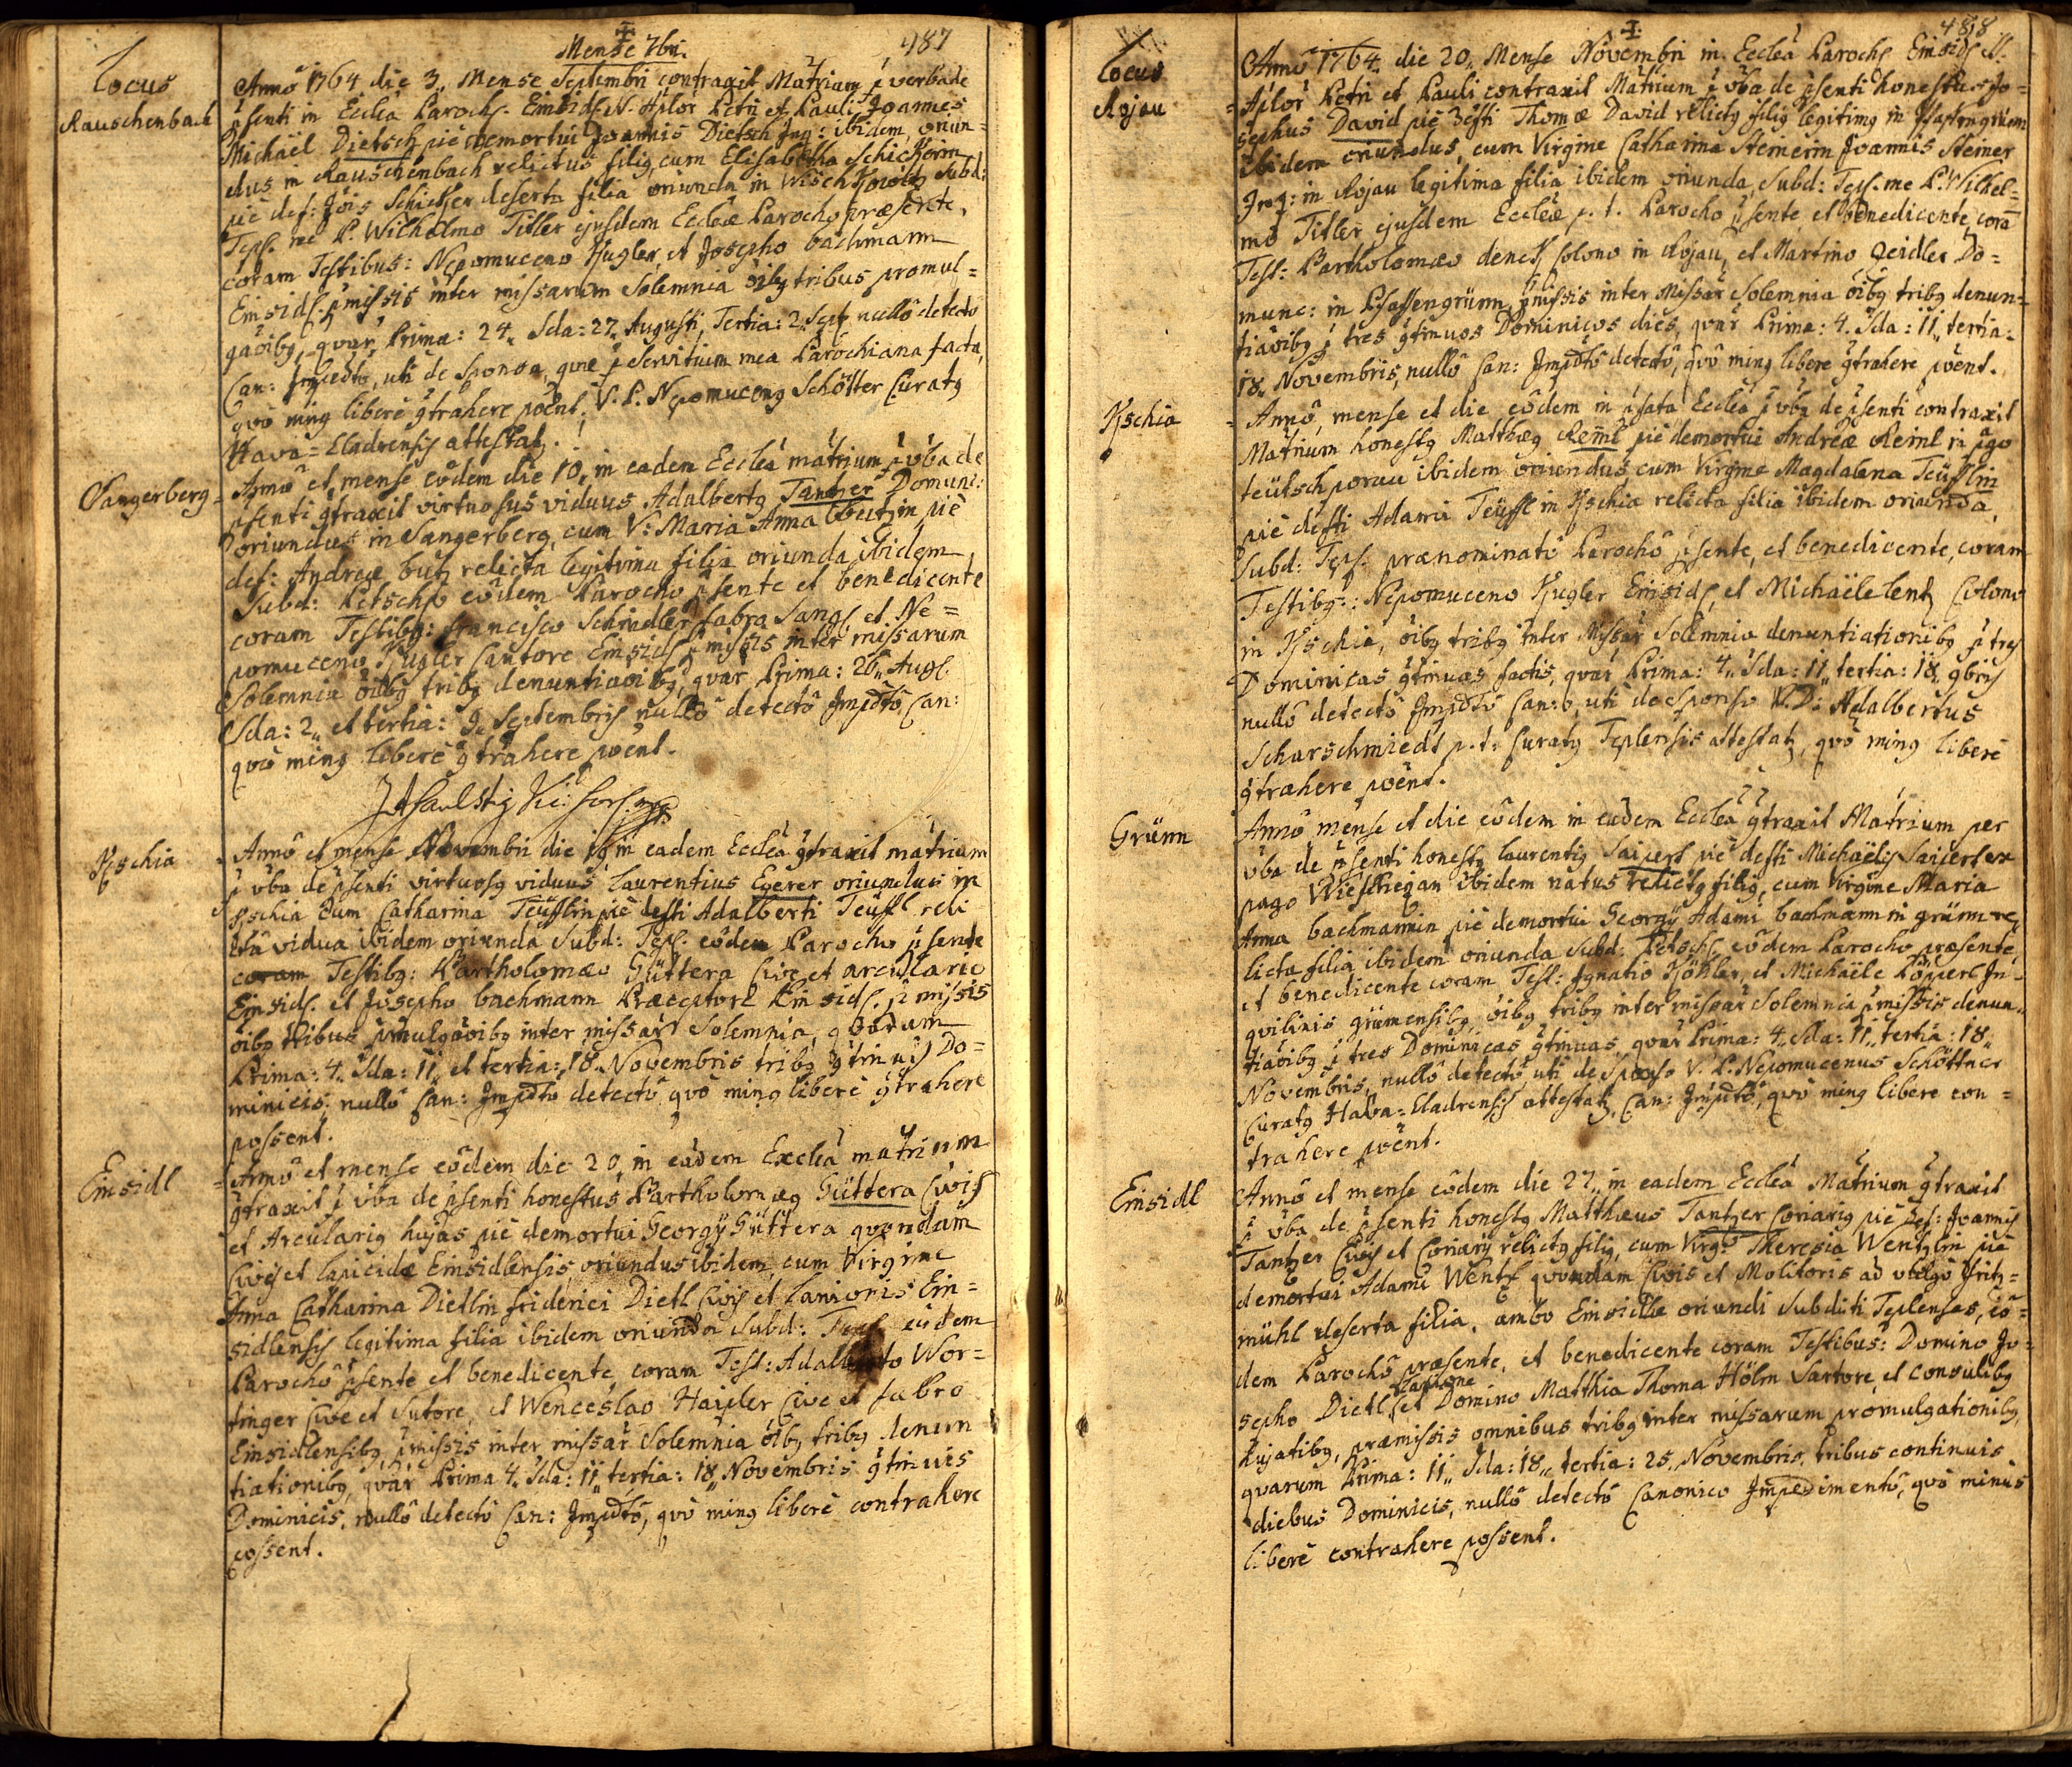 Mense 7bri.
487
Locus
Rauschenbach
Annô 1764 die 3„ Mense Septembri contraxit Matrium p verba de
psenti in Ecclâ Paroch. Einsidl. N. Aplor Petri et Pauli Joannes
Michaël Dietsch piè demortui Joannis Dietsch Inq: ibidem, oriun=
dus in Rauschenbach relictus filig, cum Elisabetha Schickerin
piè def: Jois Schicker deserta filia oriunda in Wischkowitz Subd:
Tepl. me P. Wilhelmo Titler ejusdem Eccleæ Parocho præsente,
coram Testibus: Nepomuceno Kugler, et Josepho bachmann
Einsidl. pmissis inter missarum Solemnia oibg tribus promul=
gaoibg, quar Prima: 24„ Sda: 27„ Augusti, Tertia: 2„ Sept nullô detecto
Can: Impedto, uti de Sponsa, quæ p Servitium mea Parochiana facta,
quò ming liberè gtrahere poent. V. P. Nepomuceng Schötter Curatg
Hava=Cladrensis attestatg.
Sangerberg
Annô et mense eôdem die 10„ in eadem Ecclâ matrium p vba de
psenti gtraxit virtuosus viduus Adalbertg Tantzer Domunc:
oriundus in Sangerberg, cum V: Maria Anna butzin piè
def: Andreæ butz relicta legitima filia oriunda ibidem
Subd: Petschp eôdem Parocho psente et benedicente
coram Testibg: Francisco Schindler fabro Sang. et Ne=
pomuceno Kugler Cantore Einsidl. pmissis inter missarum
Solemnia oibg tribg denuntiaoibg, quar Prima: 26„ Aug.
Sda: 2„ et tertia: 9„ Septembris nullô detectô Impdtô Can:
quò ming liberè gtrahere poent.
Kschia
Annô et mense Novembri die 19 in eadem Ecclâ gtraxit matrium
p vba de psenti virtuosg viduus Laurentius Egerer oriundus in
Kschia cum Catharina Teüfflin piè defti Adalberti Teüffl reli
cta vidua ibidem oriunda Subd: Tepl. eôdem Parocho psente
coram Testibg: Bartholomæo Güttera Cive et arculario
Einsidl. et Josepho bachmann Præceptore Einsidl. pmissis
oibg tribus pmulgaoibg inter missar Solemnia, quarum
Prima: 4„ Sda: 11„ et tertia: 18„ Novembris tribg gtinuis Do=
minicis nullô Can: Impdtô detectô quò ming liberè gtrahere
possent.
Einsidl
Annô et mense eôdem die 20„ in eadem Ecclea matrium
gtraxit p vba de psenti honestus Bartholomæg Güttera Civis
et Arcularig hujas piè demortui Georgÿ Güttera quondam
Civis et Lapicidæ Einsidlensis, oriundus ibidem, cum Virgine
Anna Catharina Dietlin friderici Dietl Civis et Lanionis Ein=
sidlensis legitima filia ibidem oriunda Subd: Tepl. eodem
Parochô psente et benedicente, coram Test: Adalberto Wor=
tinger Cive et Sutore, et Wenceslao Haipler Cive et fabro
Einsidlensibg, pmissis inter missar Solemnia oibg tribg denun
tiationibg, quar Prima 4„ Sda: 11„ tertia: 18„ Novembris gtinuis
Dominicis, nullô detectô Can: Impdtô, quò ming liberè contrahere
possent.
488
Locus
Rojau
Annô 1764 die 20„ Mense Novembri in Ecclâ Paroch. Einsidl. N.
Aplor Petri et Pauli contraxit Matrium p vba de psenti honestus Jo=
sephus David piè defti Thomæ David relictg filig legitimg in Pfaffengrün
ibidem oriundus, cum Virgine Catharina Steinerin Joannis Steiner
Inq: in Rojau legitima filia ibidem oriunda, Subd: Tepl. me P. Wilhel=
mo Titler ejusdem Eccleæ p. t. Parocho psente et benedicente, corā
Test: Bartholomæo denck Colono in Rojau, et Martino Zeidler Do=
munc: in Pfaffengrünn, pmissis inter Missar Solemnia oibg tribg denun=
tiaoibg p tres gtinuos Dominicos dies, quar Prima: 4. Sda: 11„ tertia:
18„ Novembris, nullô Can: Impdtô detectô, quò ming liberè gtrahere poent.
Kschia
Annô, mense et die eôdem in psata Ecclâ p vba de psenti contraxit
Matrium honestg Matthæg Reinl piè demortui Andreæ Reinl in pgo
teütschporau ibidem oriundus, cum Virgine Magdalena Teüfflin
piè defti Adami Teüffl in Kschia relicta filia ibidem oriunda,
Subd: Tepl. prænominatô Parochô psente, et benedicente, coram
Testibg: Nepomuceno Kugler Einsidl, et Michaële lentz Colono
in Kschia, oibg tribg inter Missar Solemnia denuntiationibg p tres
Dominicas gtinuas factis, quar Prima: 4„ Sda: 11„ tertia: 18„ 9bris
nullô detectô Impdtô Can:o, uti de Sponso V. D. Adalbertus
Scharschmiedt p. t. Curatg Teplensis attestatg, quò ming liberè
gtrahere poent.
Grünn
Annô mense et die eôdem in eâdem Ecclâ gtraxit Matrium per
vba de psenti honestg Laurentig Saipert piè defti Michaëlis Saipert ex
pago Wieschegan ibidem natus relictg filig, cum Virgine Maria
Anna bachmannin piè demortui Georgÿ Adami bachmann in grünn re=
licta filia ibidem oriunda Subd: Petsch. eôdem Parocho præsente,
et benedicente coram Test: Ignatio Köhler, et Michaële Löpperl In=
quilinis grünensibg, oibg tribg inter missar Solemnia pmissis denun=
tiaoibg p tres Dominicas gtinuas, quar Prima: 4„ Sda: 11„ tertia: 18„
Novembris, nullô detectô uti de Sponso V. P. Nepomucenus Schöttner
Curatg Hava=Cladrensis attestatg, Can: Impdtô, quò ming liberè con=
trahere poent.
Einsidl
Annô et mense eôdem die 27„ in eadem Ecclâ Matrium gtraxit
p vba de psenti honestg Matthæus Tantzer Coriarig piè def: Joannis
Tantzer Civis et Coriarÿ relictg filig, cum Virg: Theresia Wentzlin piè
demortui Adami Wentzl quondam Civis et Molitoris ad vulgò Fritz=
mühl deserta filia, ambo Einsidlæ oriundi Subditi Teplenses, eô=
dem Parochô præsente, et benedicente coram Testibus: Domino Jo=
sepho Dietl Lanione et Domino Matthia Thoma Hölm Sartore, et consulibg
hujatibg, præmissis omnibus tribg inter missarum promulgationibg,
quarum Prima: 11„ Sda: 18„ tertia: 25. Novembris, tribus continuis
diebus Dominicis, nullô detectô Canonico Impedimentô, quò minus
liberè contrahere possent.